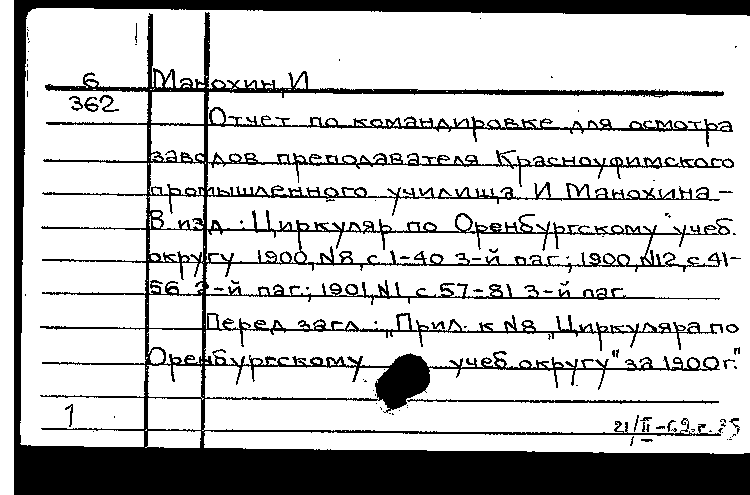 6 Манохин, И
362
Отчет по командировке для осмотра
заводов преподавателя Красноуфимского
промышленного училища И Манохина –
В изд.: Циркуляр по Оренбургскому учеб.
округу. 1900, N8, с.1-40 3-й паг.; 1900, N12, с.41-
56 3-й паг.; 1901, N1, с.57-81 3-й паг.
Перед загл.: „Прил. к N8 „Циркуляра по
Оренбургскому учеб. округу" за 1900г."
1
21/II